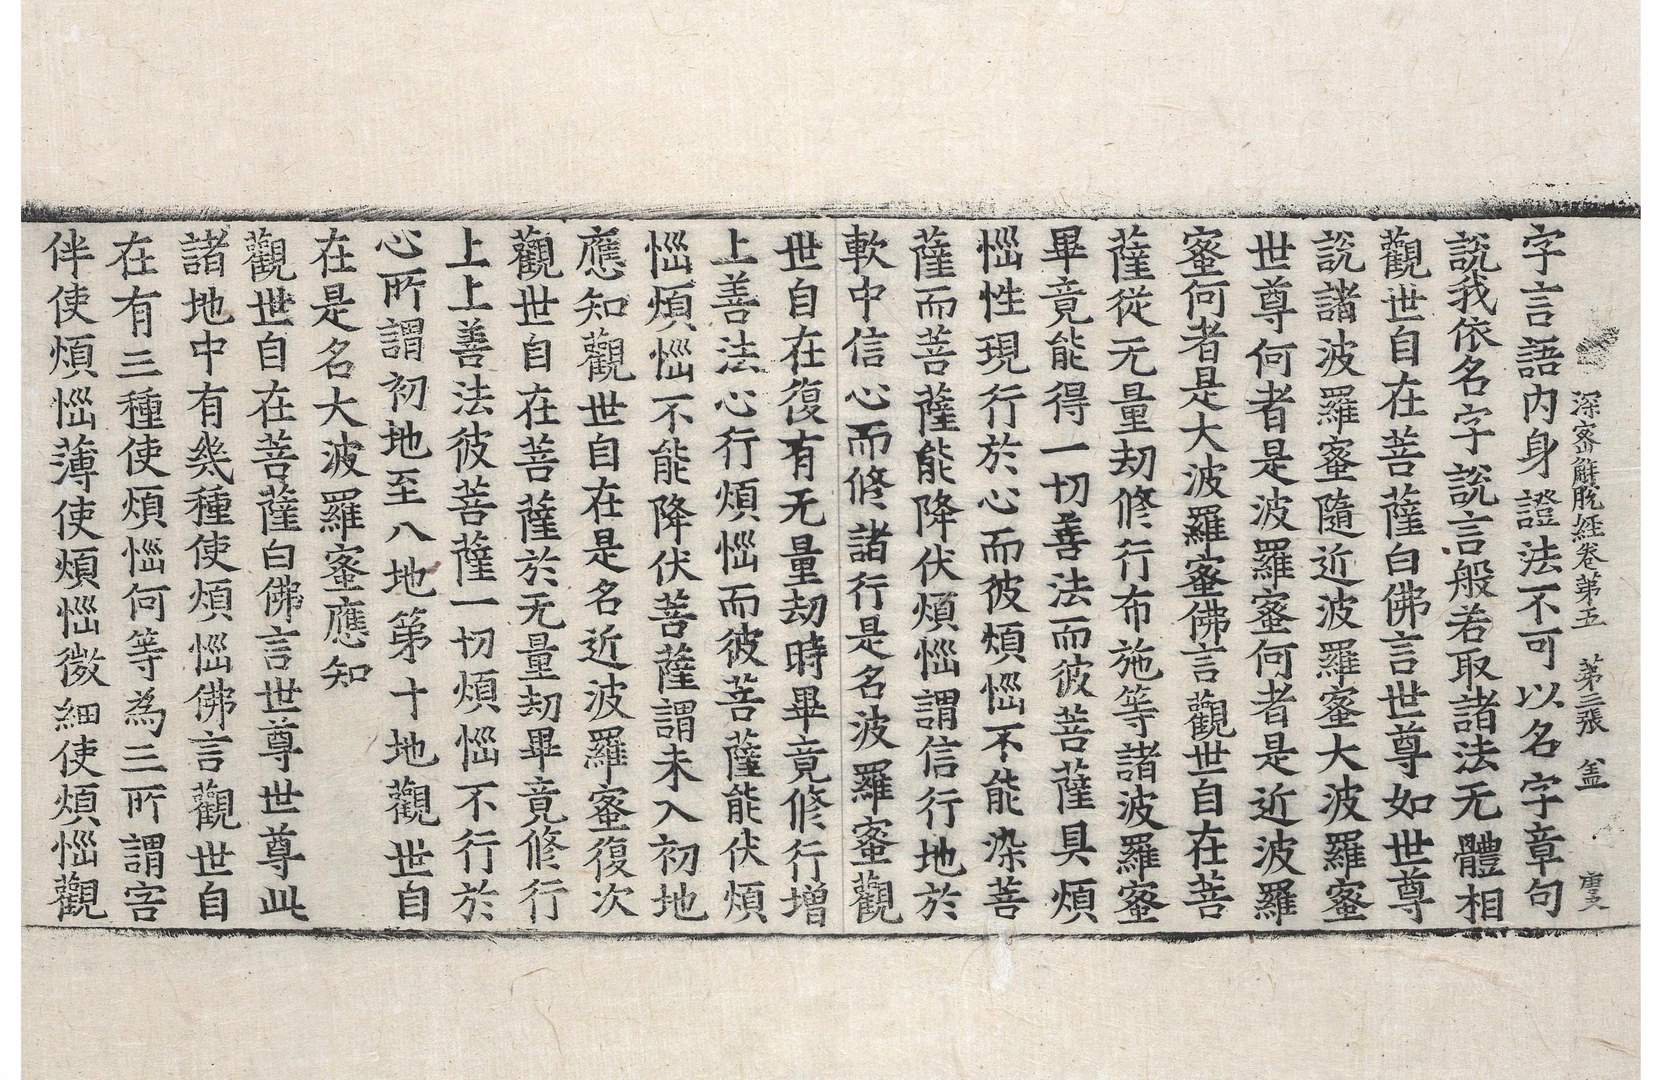 深密解脫経卷第五　第三張　盖
字言語內身證法不可以名字章句
說我依名字說言般若取諸法无體相
觀世自在菩薩白佛言世尊如世尊
說諸波羅蜜隨近波羅蜜大波羅蜜
世尊何者是波羅蜜何者是近波羅
蜜何者是大波羅蜜佛言觀世自在菩
薩從无量劫修行布施等諸波羅蜜
畢竟能得一切善法而彼菩薩具煩
惱性現行於心而彼煩惱不能染菩
薩而菩薩能降伏煩惱謂信行地於
軟中信心而修諸行是名波羅蜜觀
世自在復有无量劫時畢竟修行增
上善法心行煩惱而彼菩薩能伏煩
惱煩惱不能降伏菩薩謂未入初地
應知觀世自在是名近波羅蜜復次
觀世自在菩薩於无量劫畢竟修行
上上善法彼菩薩一切煩惱不行於
心所謂初地至八地第十地觀世自
在是名大波羅蜜應知
觀世自在菩薩白佛言世尊世尊此
諸地中有幾種使煩惱佛言觀世自
在有三種使煩惱何等為三所謂害
伴使煩惱薄使煩惱微細使煩惱觀